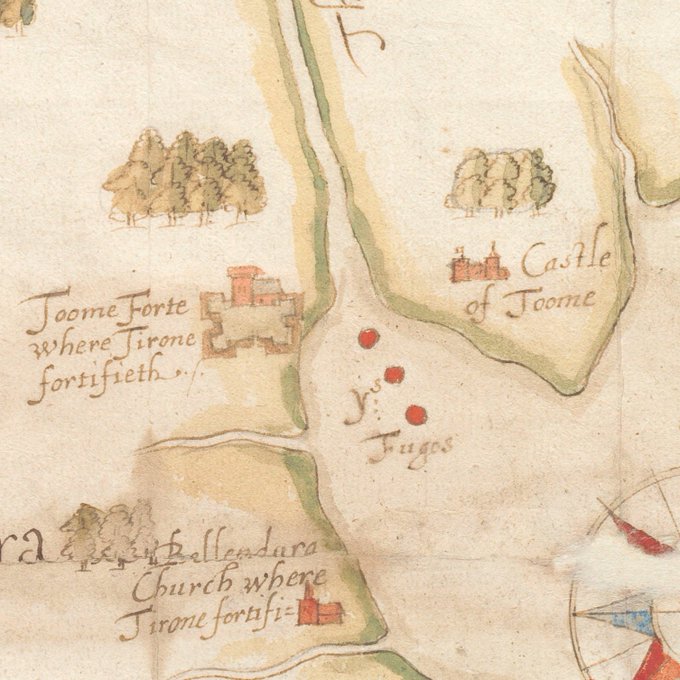 Castle
of Toome
Toome Forte
where Tirone
fortifieth
yˢ
Fuges
ra
Bellendura
Church where
Tirone fortifi=